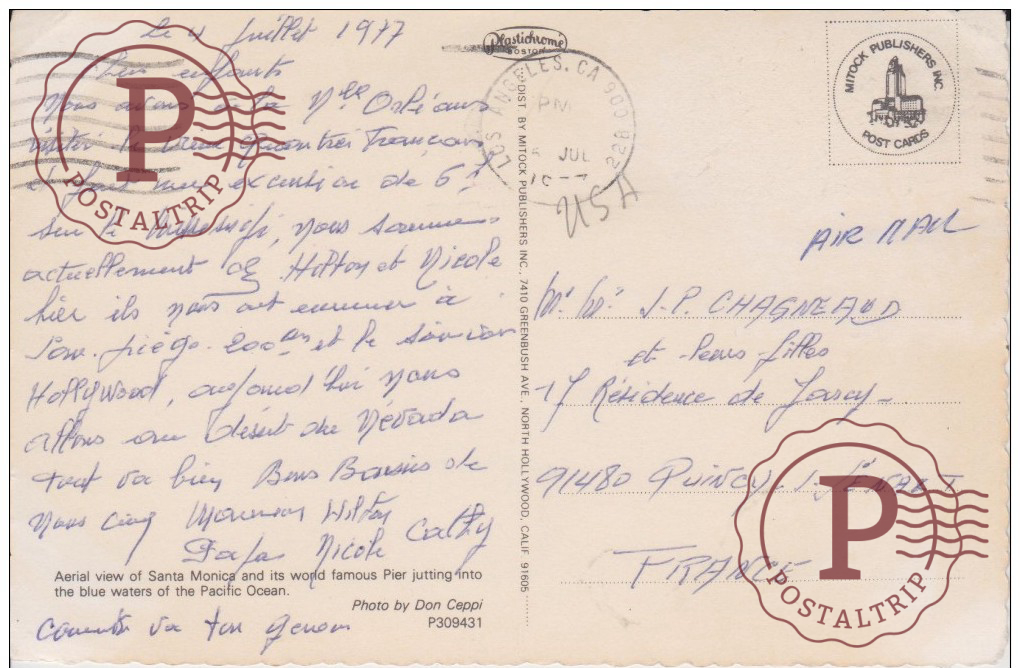 le 4 Juillet 1977
enfants
Nous avons à la Nlle Orléans
visiter le vieux quartier Français
et fait une excursion de 6h
sur le Mississipi, nous sommes
actuellement chez Hilton et Nicole
hier ils nous ont emmener à
San-Diégo-200 et le soir
Hollywood, aujourd'hui nous
allons au désert du Névada
tout va bien Bons Baisers de
nous cinq Maman Hilton
Papa Nicole Cathy
Aerial view of Santa Monica and its world famous Pier jutting into
the blue waters of the Pacific Ocean.
Photo by Don Ceppi
P309431
comment va ton genou
Plastichrome
BOSTON
DIST. BY MITOCK PUBLISHERS INC., 7410 GREENBUSH AVE., NORTH HOLLYWOOD, CALIF. 91605
LOS ANGELES, CA 900
PM
5 JUL
USA
MITOCK PUBLISHERS INC.
POST CARDS
AIR MAIL
Mr Mr J-P. CHAGNEAUD
et leurs filles
17 Résidence de
91480 QUINCY-S-SÉNART
FRANCE
P
POSTALTRIP
P
POSTALTRIP